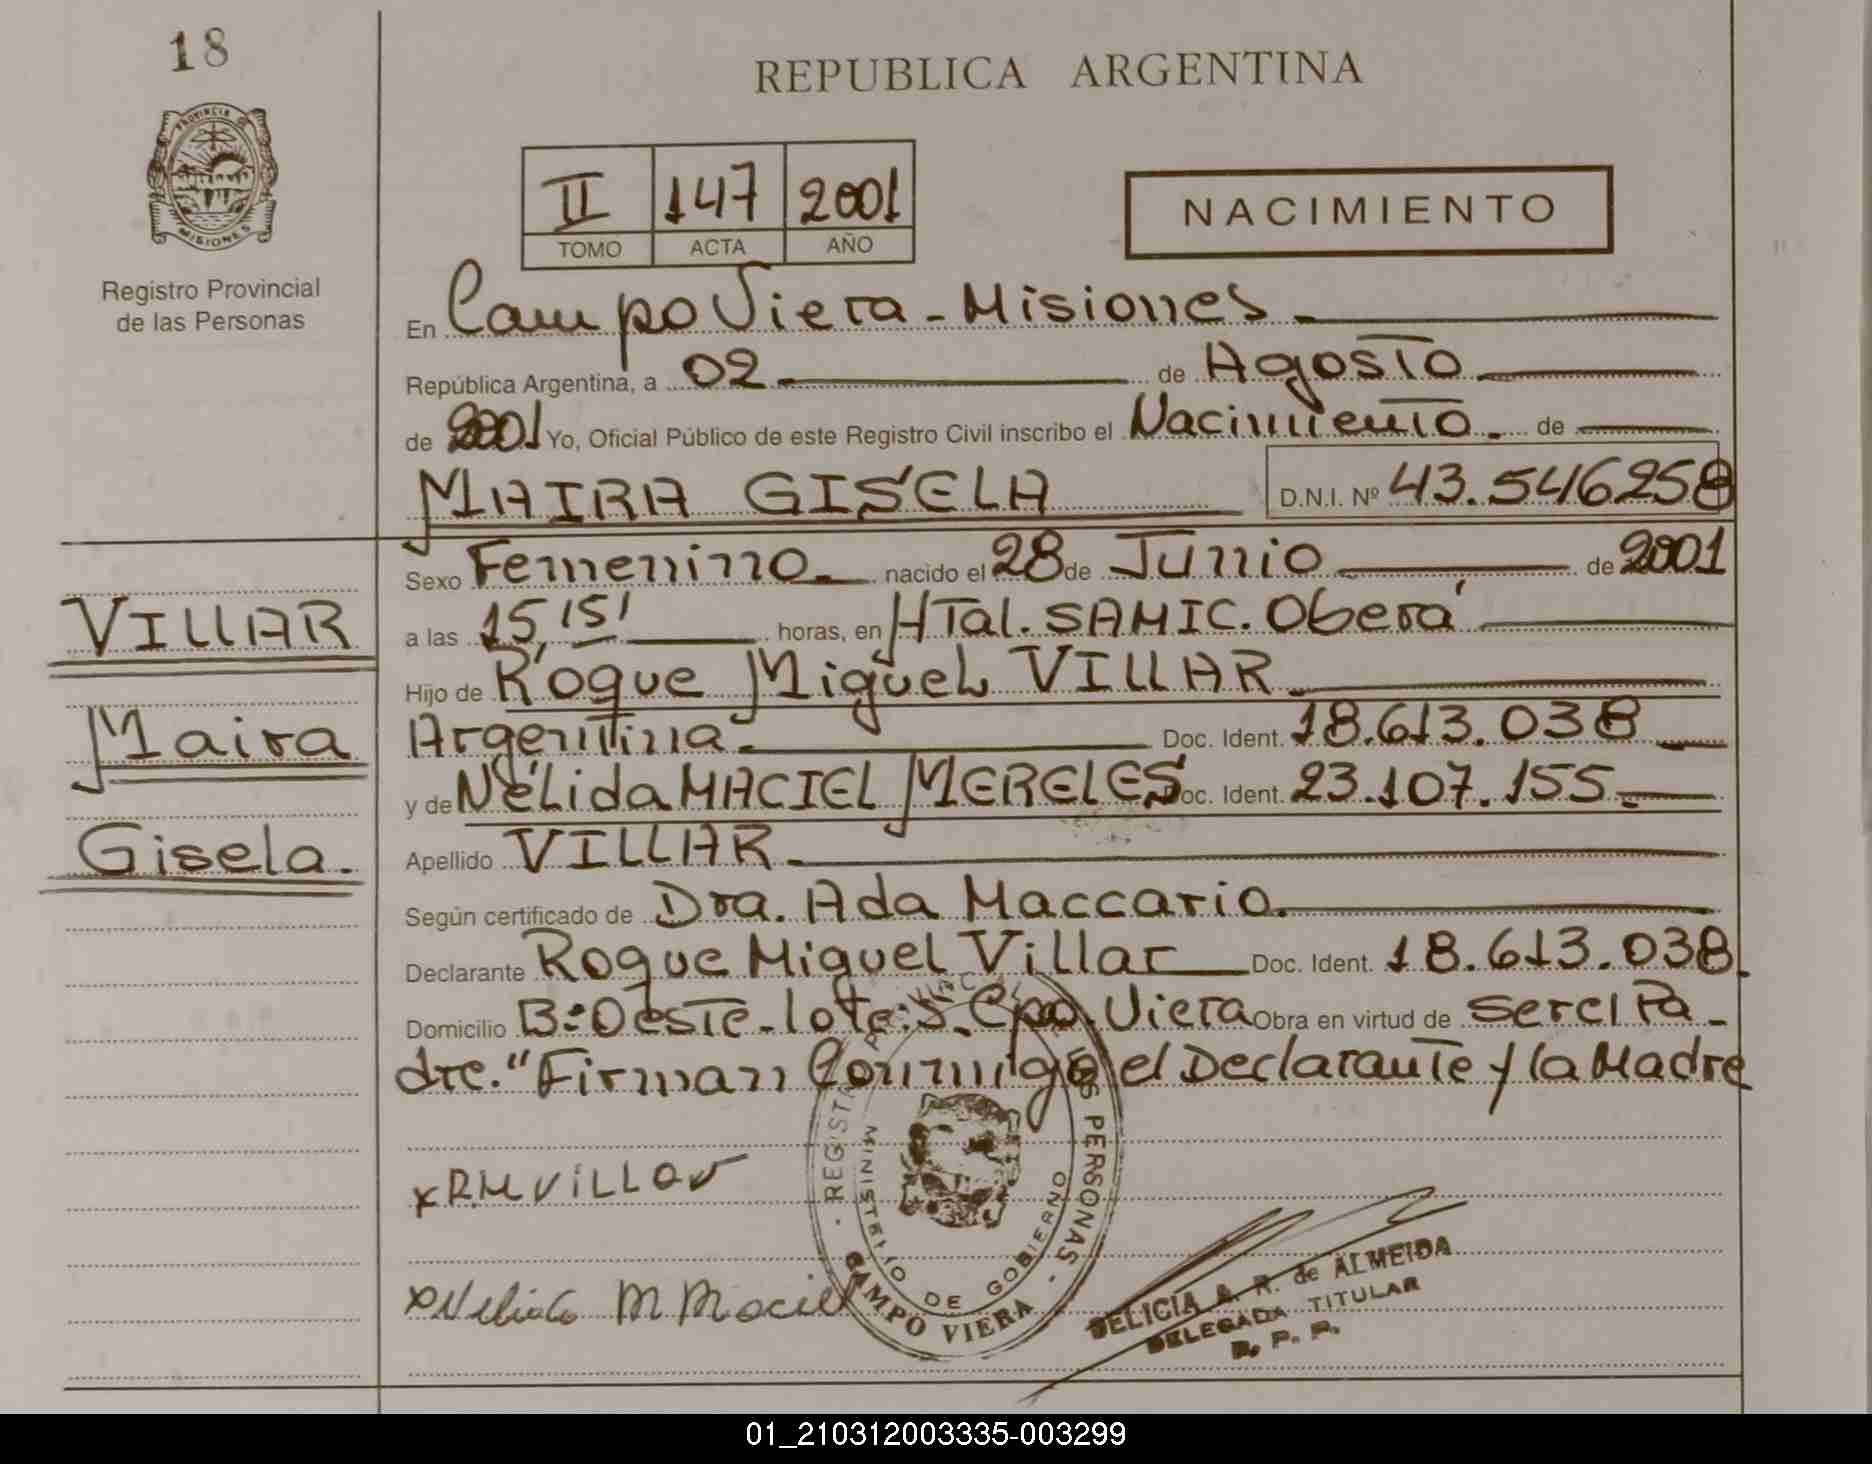 18
PROVINCIA DE
MISIONES
Registro Provincial
de las Personas
REPUBLICA ARGENTINA
II 147 2001
TOMO ACTA AÑO
NACIMIENTO
En Campo Viera - Misiones.
República Argentina, a 02 de Agosto
de 2001 Yo, Oficial Público de este Registro Civil inscribo el Nacimiento. de
MAIRA GISELA D.N.I. Nº 43.546258
Sexo Femenino. nacido el 28 de Junio de 2001
a las 15,15' horas, en HTal. SAMIC. Oberá
Hijo de Roque Miguel VILLAR.
Argentina. Doc. Ident. 18.613.038
y de Nélida MACIEL MERELES Doc. Ident. 23.107.155.
Apellido VILLAR.
Según certificado de Dra. Ada Maccario.
Declarante Roque Miguel Villar Doc. Ident. 18.613.038.
Domicilio B:Oeste-lote:5. Cpo. Viera Obra en virtud de ser el Pa-
dre. "Firman Conmigo el Declarante y la Madre
VILLAR
Maira
Gisela.
x RM Villar
x Nelida M Maciel
REGISTRO PROVINCIAL DE LAS PERSONAS
MINISTERIO DE GOBIERNO
CAMPO VIERA
DELICIA A. R. de ALMEIDA
DELEGADA TITULAR
R. P. P.
01_210312003335-003299